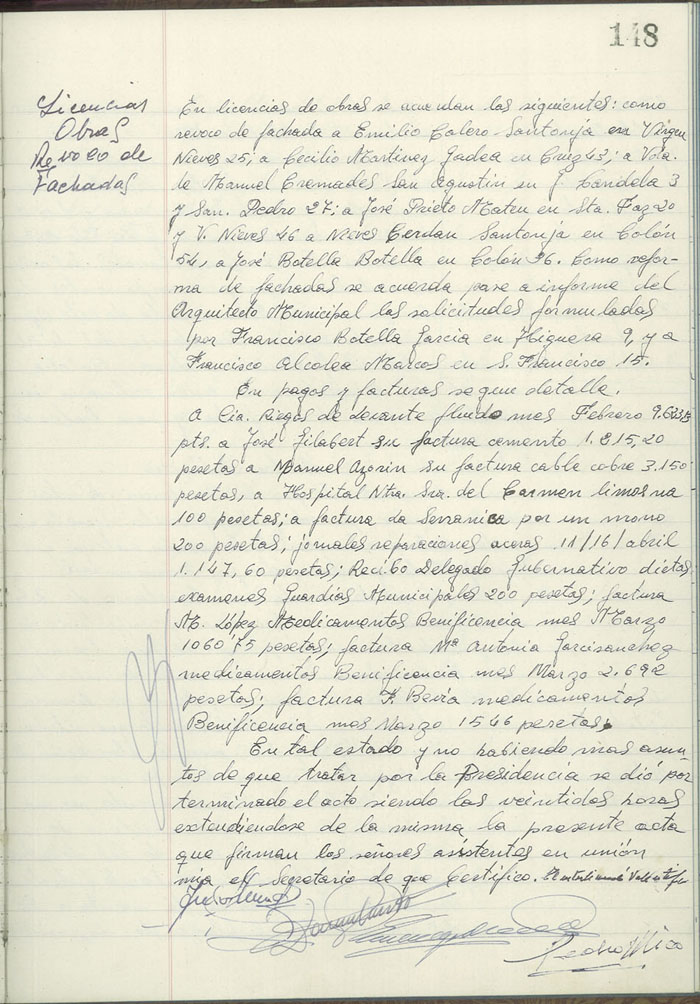 148
Licencias
Obras
Revoco de
Fachadas
En licencias de obras se acuerdan las siguientes: como
revoco de fachada a Emilio Calero Santonja en Virgen
Nieves 25; a Cecilio Martinez Gadea en Cruz 43; a Vda.
de Manuel Cremades San Agustin en J. Candela 3
y San. Pedro 27; a José Prieto Mateu en Sta. Faz 20
y V. Nieves 46 a Nieves Cerdan Santonja en Colón
54, a José Botella Botella en Colón 36. Como refor-
ma de fachadas se acuerda pase a informe del
Arquitecto Municipal las solicitudes formuladas
por Francisco Botella Garcia en Higuera 9, y a
Francisco Alcolea Marcos en S. Francisco 15.
En pagos y facturas segun detalle.
A Cia. Riegos de Levante fluido mes Febrero
pts. a José Gilabert su factura cemento 1.815,20
pesetas a Manuel Azorin su factura cable cobre 3.150
pesetas, a Hospital Ntra. Sra. del Carmen limosna
100 pesetas; a factura da Serranica por un mono
200 pesetas; jornales reparaciones aceras 11/16/abril
1.147,60 pesetas; Recibo Delegado Gubernativo dietas
examenes Guardias Municipales 200 pesetas; factura
M. López Medicamentos Benificencia mes Marzo
1060'75 pesetas; factura Mª Antonia Garcisanchez
medicamentos Benificencia mes Marzo 2.692
pesetas; factura F. Bevia medicamentos
Benificencia mes Marzo 1546 pesetas;
En tal estado y no habiendo mas asun-
tos de que tratar por la Presidencia se dió por
terminado el acto siendo las veintidos horas
extendiendose de la misma la presente acta
que firman los señores asistentes en unión
mia el Secretario de que Certifico.
Pedro Mico